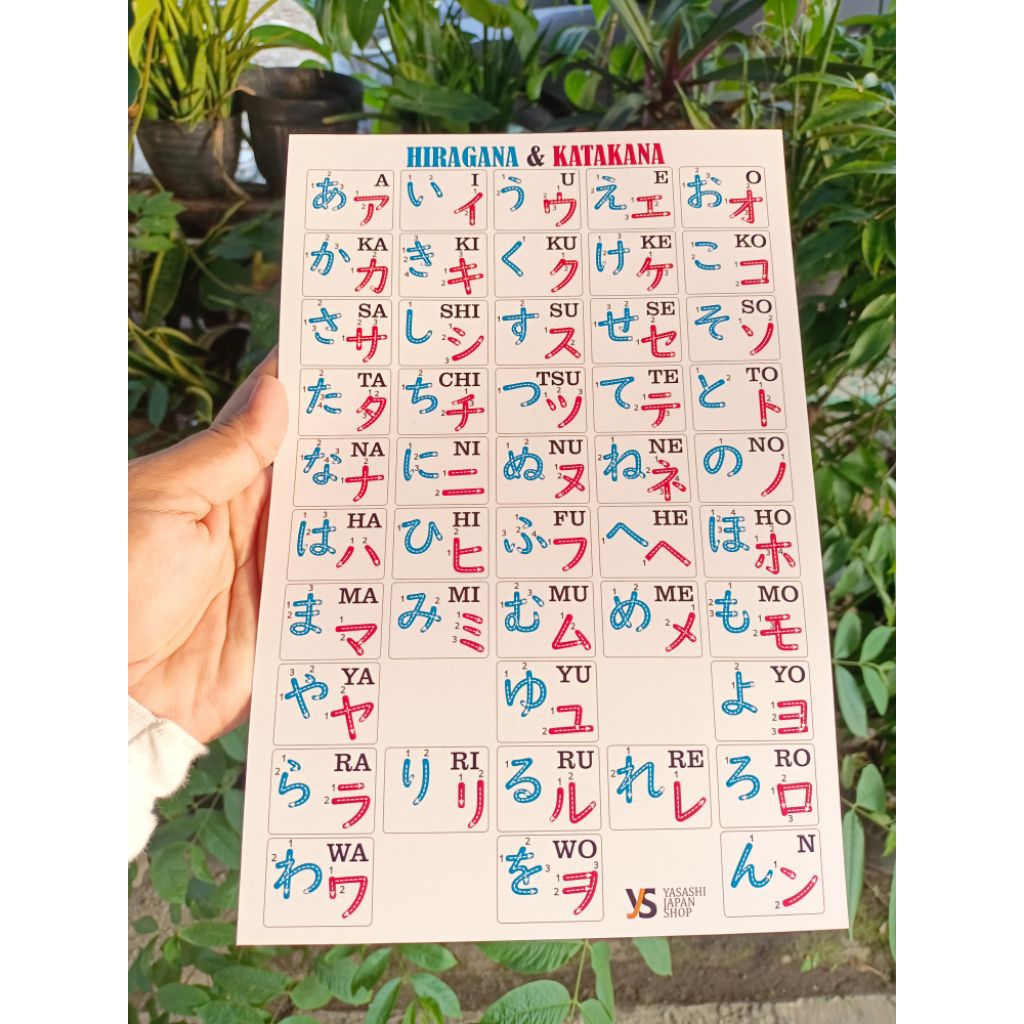 HIRAGANA & KATAKANA
あ ア A い イ I う ウ U え エ E お オ O
か カ KA き キ KI く ク KU け ケ KE こ コ KO
さ サ SA し シ SHI す ス SU せ セ SE そ ソ SO
た タ TA ち チ CHI つ ツ TSU て テ TE と ト TO
な ナ NA に ニ NI ぬ ヌ NU ね ネ NE の ノ NO
は ハ HA ひ ヒ HI ふ フ FU へ ヘ HE ほ ホ HO
ま マ MA み ミ MI む ム MU め メ ME も モ MO
や ヤ YA ゆ ユ YU よ ヨ YO
ら ラ RA り リ RI る ル RU れ レ RE ろ ロ RO
わ ワ WA を ヲ WO ん ン N
YS YASASHI
JAPAN
SHOP